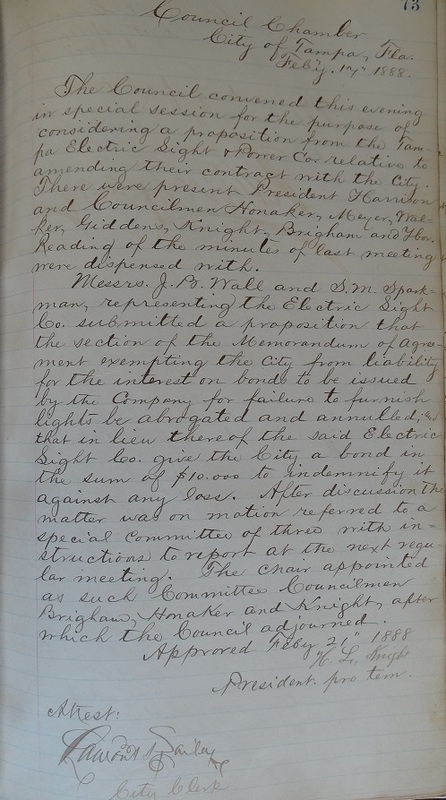 73
Council Chamber
City of Tampa, Fla.
Feby. 17" 1888.
The Council convened this evening
in special session for the purpose of
considering a proposition from the Tam-
pa Electric Light & Power Co relative to
amending their contract with the City.
There were present President Harrison
and Councilmen Honaker, Meyer, Wal-
ker, Giddens, Knight, Brigham and
Reading of the minutes of last meeting
were dispensed with.
Messrs. J. B. Wall and S. M. Spark-
man, representing the Electric Light
Co. submitted a proposition that
the section of the Memorandum of agree-
ment exempting the City from liability
for the interest on bonds to be issued
by the Company for failure to furnish
lights be abrogated and annulled; and
that in lieu thereof the said Electric
Light Co. give the City a bond in
the sum of $10.000 to indemnify it
against any loss. After discussion the
matter was on motion referred to a
special Committee of three with in-
structions to report at the next regu-
lar meeting. The chair appointed
as such Committee Councilmen
Brigham, Honaker and Knight, after
which the Council adjourned.
Approved Feby 21" 1888
H. L. Knight
President pro tem.
Attest:
City Clerk